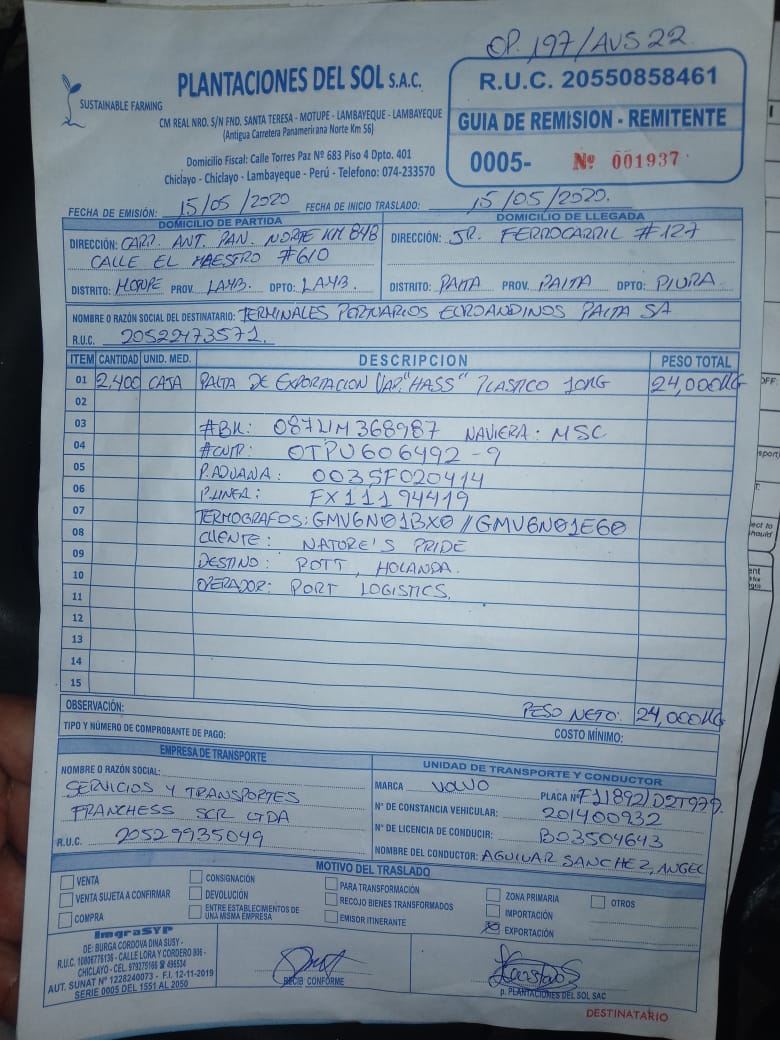 OP. 197/AVS 22
PLANTACIONES DEL SOL S.A.C.
SUSTAINABLE FARMING
CM REAL NRO. S/N FND. SANTA TERESA - MOTUPE - LAMBAYEQUE - LAMBAYEQUE
(Antigua Carretera Panamerirana Norte Km 56)
Domicilio Fiscal: Calle Torres Paz Nº 683 Piso 4 Dpto. 401
Chiclayo - Chiclayo - Lambayeque - Perú - Telefono: 074-233570
R.U.C. 20550858461
GUIA DE REMISION - REMITENTE
0005- Nº 001937
FECHA DE EMISIÓN: 15/05/2020 FECHA DE INICIO TRASLADO: 15/05/2020.
DOMICILIO DE PARTIDA
DIRECCIÓN: CARR. ANT. PAN. NORTE KM 848
CALLE EL MAESTRO #610
DISTRITO: MOTUPE PROV. LAMB. DPTO: LAMB.
DOMICILIO DE LLEGADA
DIRECCIÓN: JR. FERROCARRIL #127
DISTRITO: PAITA PROV. PAITA DPTO: PIURA
NOMBRE O RAZÓN SOCIAL DEL DESTINATARIO: TERMINALES PORTUARIOS EUROANDINOS PAITA SA
R.U.C. 20522473571.
ITEM CANTIDAD UNID. MED. DESCRIPCION PESO TOTAL
01 2,400 CAJA PALTA DE EXPORTACION VAR. "HASS" PLASTICO 10KG 24,000KG
02
03 #BK: 087LIM368987 NAVIERA: MSC
04 #CNTR: OTPU606492-9
05 P.ADUANA: 003SF020414
06 P.LINEA: FX11194419
07 TERMOGRAFOS: GMV6N01BX0 // GMV6N01E60
08 CLIENTE: NATURE'S PRIDE
09 DESTINO: ROTT, HOLANDA.
10 OPERADOR: PORT LOGISTICS.
11
12
13
14
15
OBSERVACIÓN: PESO NETO: 24,000KG
TIPO Y NÚMERO DE COMPROBANTE DE PAGO: COSTO MÍNIMO:
EMPRESA DE TRANSPORTE
NOMBRE O RAZÓN SOCIAL:
SERVICIOS Y TRANSPORTES
FRANCHESS SCR LTDA
R.U.C. 20529935049
UNIDAD DE TRANSPORTE Y CONDUCTOR
MARCA VOLVO PLACA Nº
Nº DE CONSTANCIA VEHICULAR: 201400932
Nº DE LICENCIA DE CONDUCIR: B03504643
NOMBRE DEL CONDUCTOR: AGUILAR SANCHEZ, ANGEL
MOTIVO DEL TRASLADO
VENTA
VENTA SUJETA A CONFIRMAR
COMPRA
CONSIGNACIÓN
DEVOLUCIÓN
ENTRE ESTABLECIMIENTOS DE
UNA MISMA EMPRESA
PARA TRANSFORMACIÓN
RECOJO BIENES TRANSFORMADOS
EMISOR ITINERANTE
ZONA PRIMARIA
IMPORTACIÓN
EXPORTACIÓN
OTROS
ImgraSYP
DE: BURGA CORDOVA DINA SUSY -
R.U.C. 10806776136 - CALLE LORA Y CORDERO 806 -
CHICLAYO - CEL. 979275166 ☎ 496534
AUT. SUNAT Nº 1228240073 - F.I. 12-11-2019
SERIE 0005 DEL 1551 AL 2050
RECIBI CONFORME
p. PLANTACIONES DEL SOL SAC
DESTINATARIO